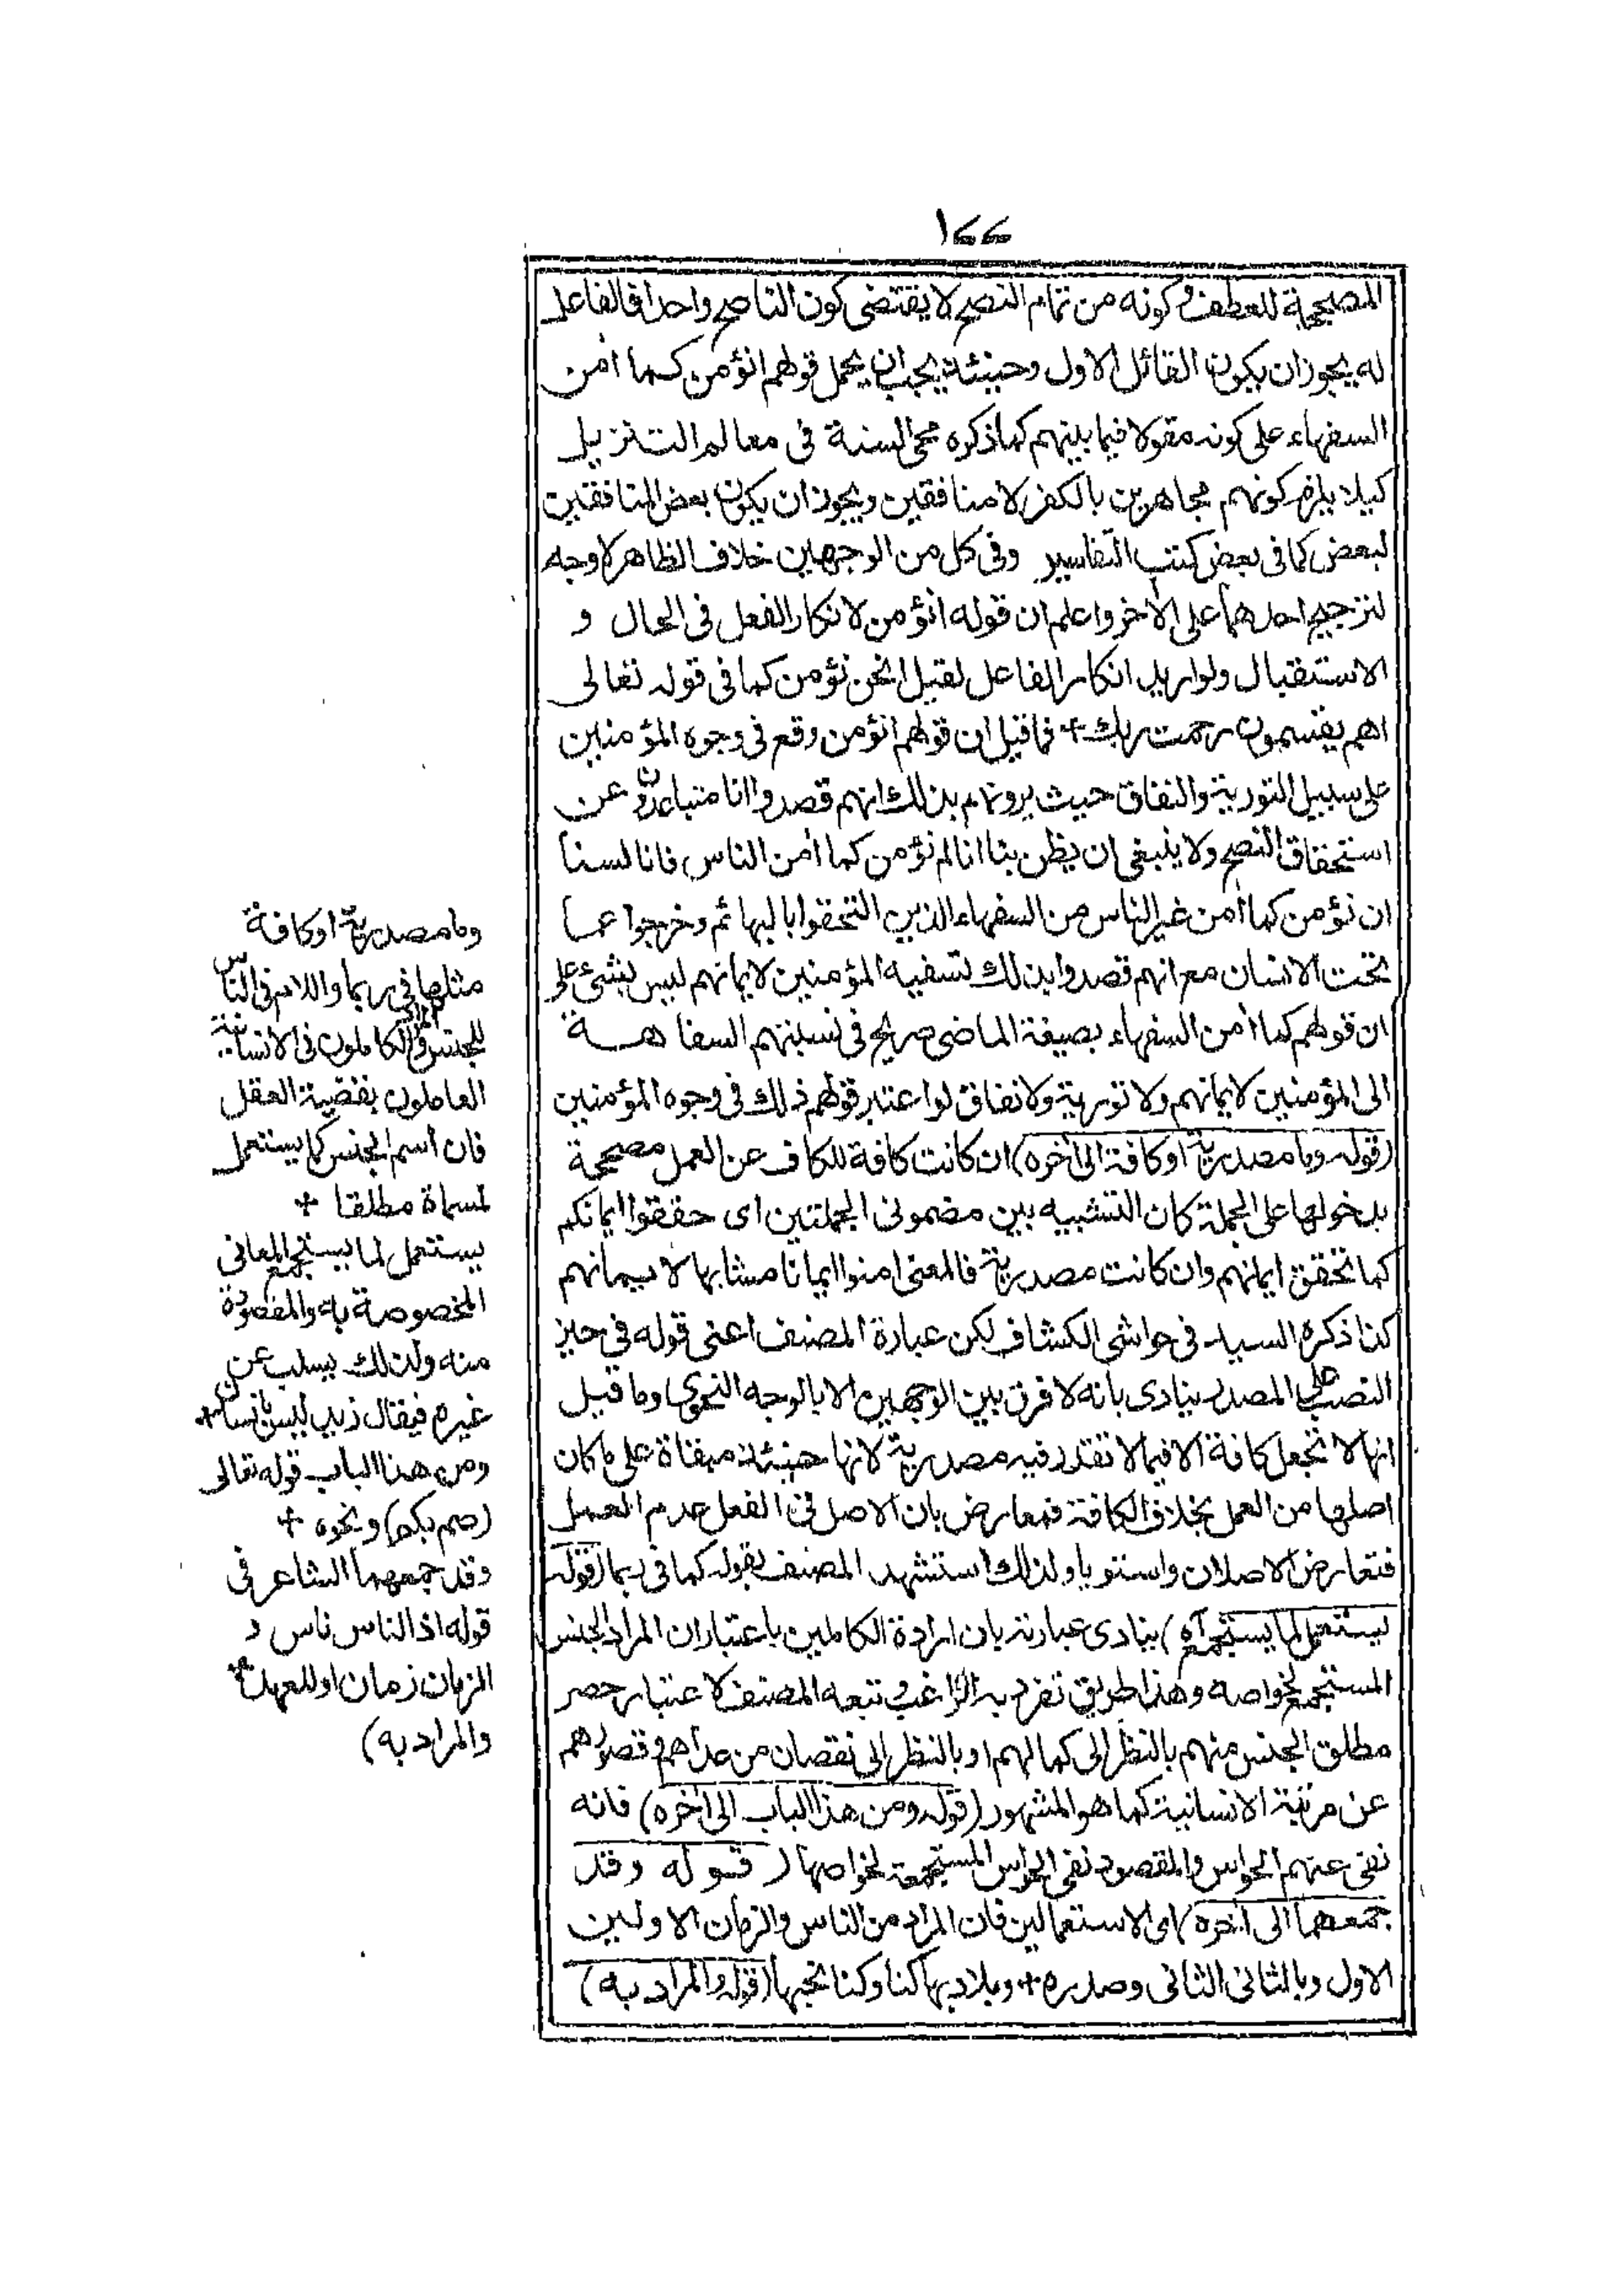 ١٧٧
المصححة للعطف وكونه من تمام النصح لا يقتضى كون الناصح واحدا فالفاعل
له يجوز ان يكون القائل الاول وحينئذ يجب ان يحمل قولهم انؤمن كما أمن
السفهاء على كونه مقولا فيما بينهم كما ذكره محى السنة فى معالم التنزيل
كيلا يلزم كونهم مجاهرين بالكفر لا منافقين ويجوز ان يكون بعض المنافقين
لبعض كما فى بعض كتب التفاسير وفى كل من الوجهين خلاف الظاهر لا وجه
لترجيح احدهما على الأخر واعلم ان قوله انؤمن لانكار الفعل فى الحال و
الاستقبال ولو اريد انكار الفاعل لقيل انحن نؤمن كما فى قوله تعالى
اهم يقسمون رحمت ربك + فما قيل ان قولهم انؤمن وقع فى وجوه المؤمنين
على سبيل التورية والنفاق حيث يرونهم بذلك انهم قصدوا انا متباعدون عن
استحقاق النصح ولا ينبغى ان يظن بنا انا لم نؤمن كما أمن الناس فانا لسنا
ان نؤمن كما أمن غير الناس من السفهاء الذين التحقوا بالبهائم وخرجوا عما
تحت الانسان مع انهم قصدوا بذلك تسفيه المؤمنين لايمانهم ليس بشئ على
ان قولهم كما أمن السفهاء بصيغة الماضى صريح فى نسبتهم السفاهـة
الى المؤمنين لايمانهم ولا تورية ولا نفاق لو اعتبر قولهم ذلك فى وجوه المؤمنين
(قوله وما مصدرية او كافة الى أخره) ان كانت كافة للكاف عن العمل مصححة
بدخولها على الجملة كان التشبيه بين مضمونى الجملتين اى حققوا ايمانكم
كما تحقق ايمانهم وان كانت مصدرية فالمعنى امنوا ايمانا مشابها لايمانهم
كذا ذكره السيد فى حواشى الكشاف لكن عبارة المصنف اعنى قوله فى حيز
النصب على المصدر ينادى بانه لا فرق بين الوجهين الا بالوجه النحوى وما قيل
انها لا تجعل كافة الا فيما لا تقدر فيه مصدرية لانها حينئذ مبقاة على ما كان
اصلها من العمل بخلاف الكافة فمعارض بان الاصل فى الفعل عدم العمل
فتعارض الاصلان واستويا ولذلك استشهد المصنف بقوله كما فى ربما (قوله
يستعمل لما يستجمع آه) ينادى عبارته بان ارادة الكاملين باعتبار ان المراد الجنس
المستجمع لخواصه وهذا طريق تفرد به الراغب وتبعه المصنف لا عتبار حصر
مطلق الجنس منهم بالنظر الى كمالهم او بالنظر الى نقصان من عداهم وقصورهم
عن مرتبة الانسانية كما هو المشهور (قوله ومن هذا الباب الى أخره) فانه
نفى عنهم الحواس والمقصود نفى الحواس المستجمعة لخواصها (قوله وقد
جمعهما الى أخره) اى الاستعمالين فان المراد من الناس والزمان الاولين
الاول وبالثانى الثانى وصدره + وبلاد بها كنا وكنا نحبها (قوله والمراد به)
وما مصدرية او كافة
مثلها فى ربما واللام فى الناس
للجنس والمراد الكاملون فى الانسانية
العاملون بقضية العقل
فان أسم الجنس كما يستعمل
لمسماة مطلقا +
يستعمل لما يستجمع المعانى
المخصوصة به والمقصودة
منه ولذلك يسلب عن
غيره فيقال زيد ليس بانسان +
ومن هذا الباب قوله تعالى
(صم بكم) ونحوه +
وقد جمعهما الشاعر فى
قوله اذ الناس ناس و
الزمان زمان او للعهد +
والمراد به)